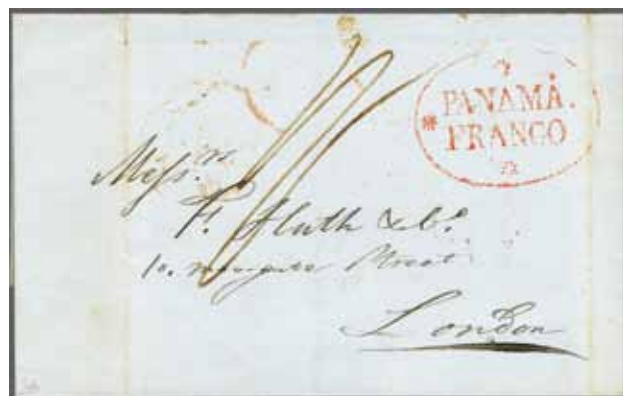 PANAMÁ.
FRANCO
Messrs
F. Huth & Co.
10. Moorgate Street
London